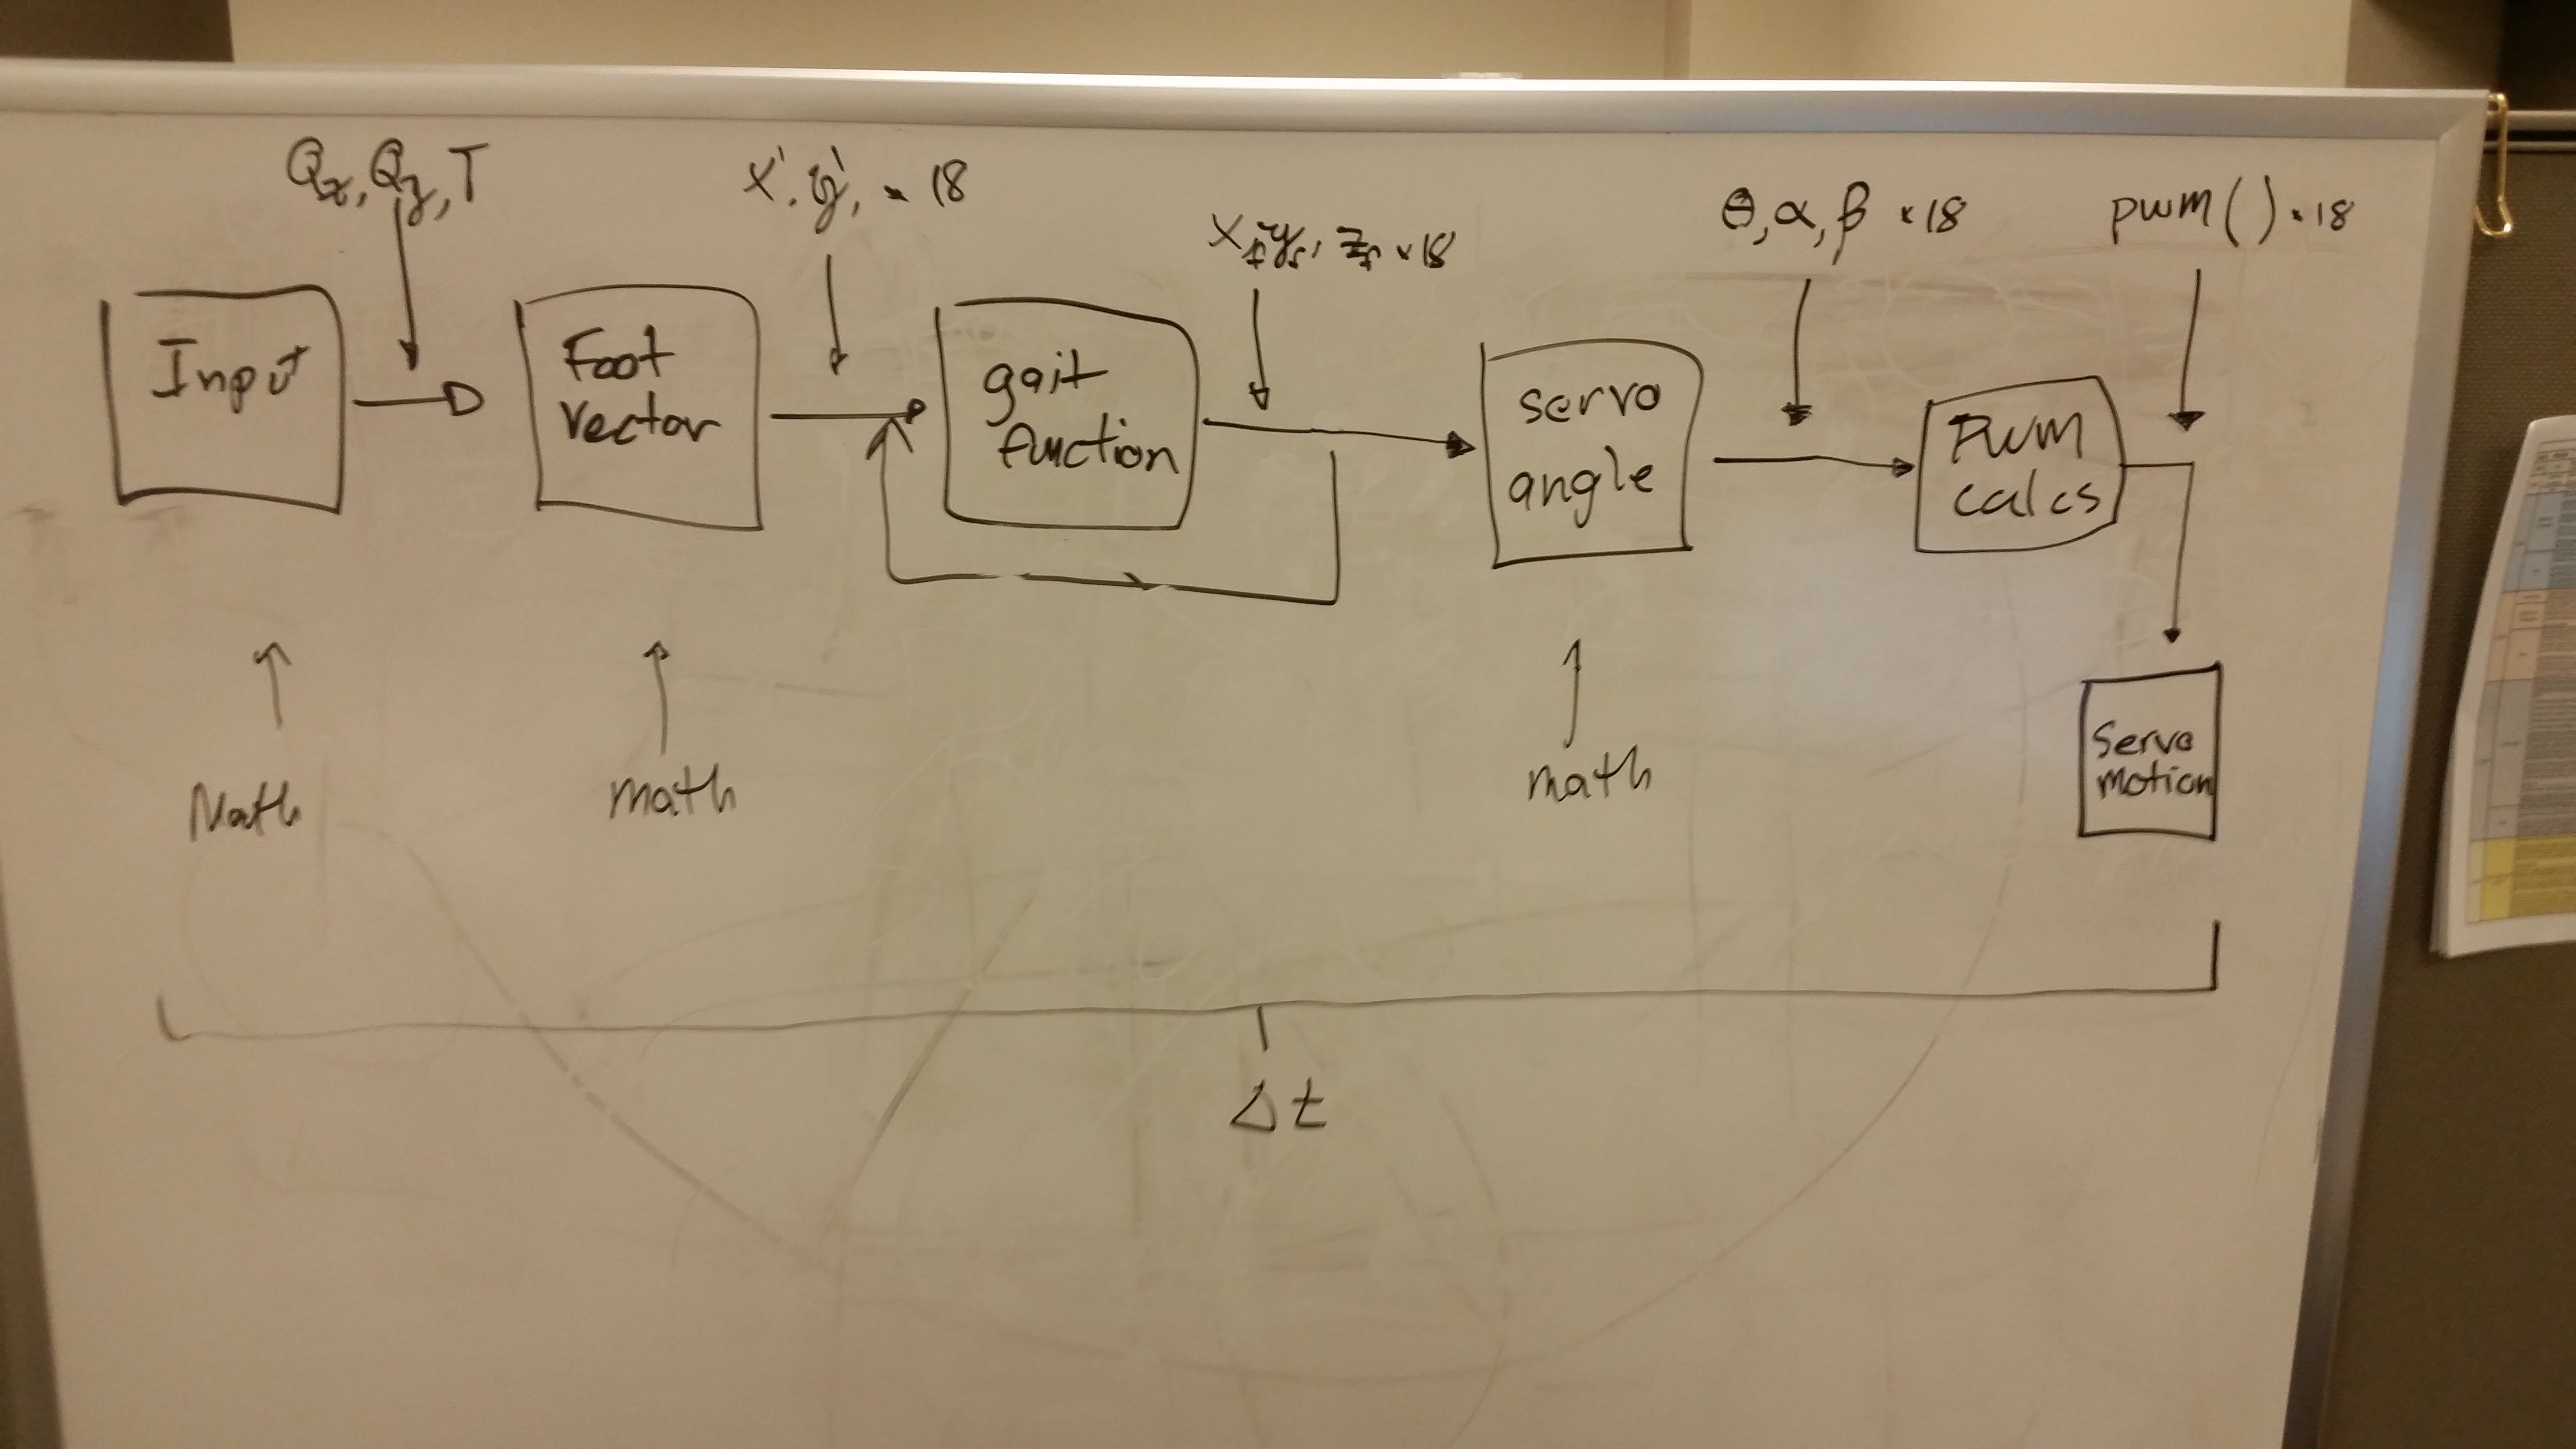 Qx, Qy, T
x', y', × 18
xf, yf, zf × 18
θ, α, β × 18
pwm( ) × 18
Input
Foot
vector
gait
function
servo
angle
PWM
calcs
Servo
motion
Math
math
math
Δt